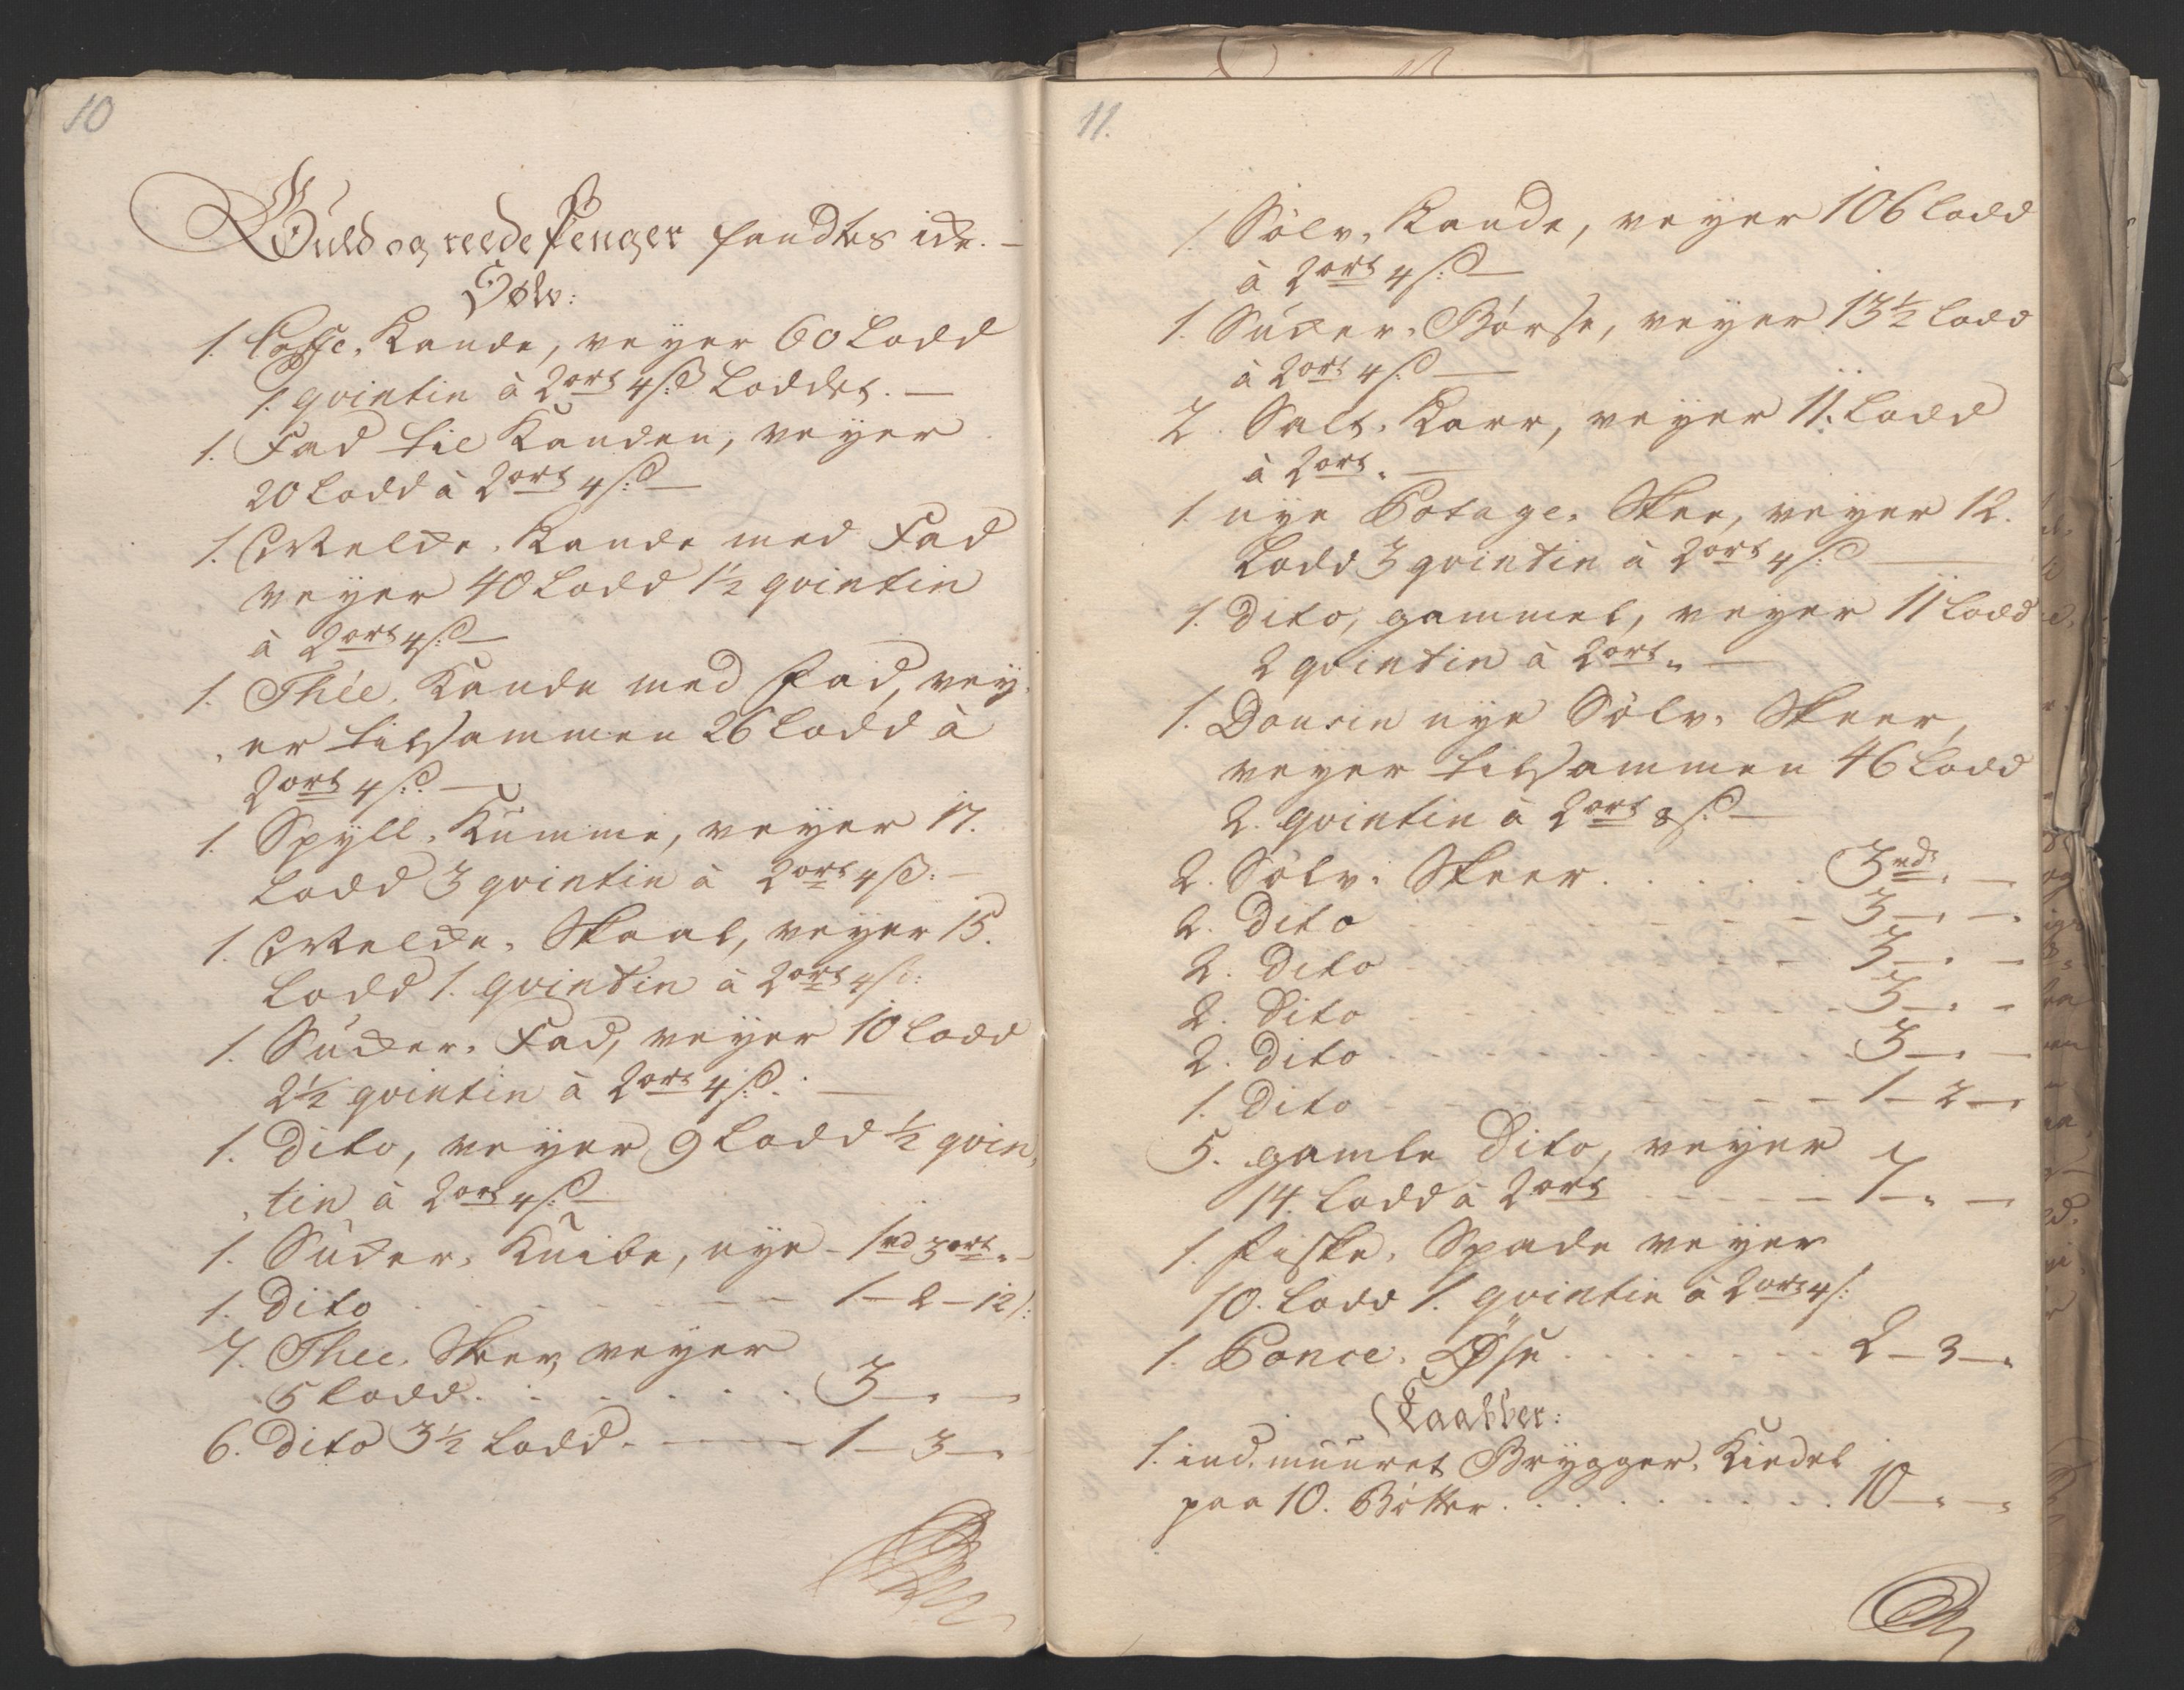 10
Guld og reede Penger fandtes icke. —
Sølv:
1. Caffe, Kande, veyer 60 Lodd
1. qvintin à 2 ort 4 ß Loddet. —
1. Fad til Kanden, veyer
20 Lodd à 2 ort 4 ß —
1. Melcke, Kande med Fad
veyer 40 Lodd 1½ qvintin
à 2 ort 4 ß —
1. Thée, Kande med Fad, vey,
,er tilsammen 26 Lodd à
2 ort 4 ß. —
1. Spyll, Kumme, veyer 17.
Lodd 3 qvintin à 2 ort 4 ß: —
1. Melcke, Skaal, veyer 15.
Lodd 1. qvintin à 2 ort 4 ß:
1. Sucker, Fad, veyer 10 Lodd
2½ qvintin à 2 ort 4 ß. —
1. Dito, veyer 9 Lodd ½ qvin,
,tin à 2 ort 4 ß —
1. Sucker, Knibe, nye - 1 rd 3 ort „ -
1. Dito - - - 1 — 2 — 12 ß:
7. Thee, Skeer, veyer
5 Lodd. . . . . . . 3 — „ —
6. Dito 3½ Lodd. — 1 — 3 — „
11.
1. Sølv, Kande, veyer 106 Lodd
à 2 ort 4 ß —
1. Sucker, Børse, veyer 13½ Lodd
à 2 ort 4 ß —
2. Salt, Karr, veyer 11. Lodd
à 2 ort „ —
1. nye Potage, Skee, veyer 12.
Lodd 3 qvintin à 2 ort 4 ß —
1. Dito, gammel, veyer 11 Lodd
2 qvintin à 2 ort „ —
1. Dousin nye Sølv, Skeer,
veyer tilsammen 46 Lodd
2. qvintin à 2 ort 8 ß —
2. Sølv, Skeer. . . . . . 3 rd „ —
2. Dito - - - 3 — „ — „
2. Dito - - - 3 — „ —
2. Dito - - - 3 — „ —
2. Dito - - - 3 — „ —
1. Dito - - - 1 — 2 — „
5. gamle Dito, veyer
14. Lodd à 2 ort - - - 7 — „ —
1. Fiske, Spade veyer
10. Lodd 1. qvintin à 2 ort 4 ß:
1. Ponce, Øse . . . . . . 2 — 3 — „
Kaabber:
1. ind, muuret Brygger, Kiedel
paa 10. Bøtter. . . . . . . 10 — „ — „